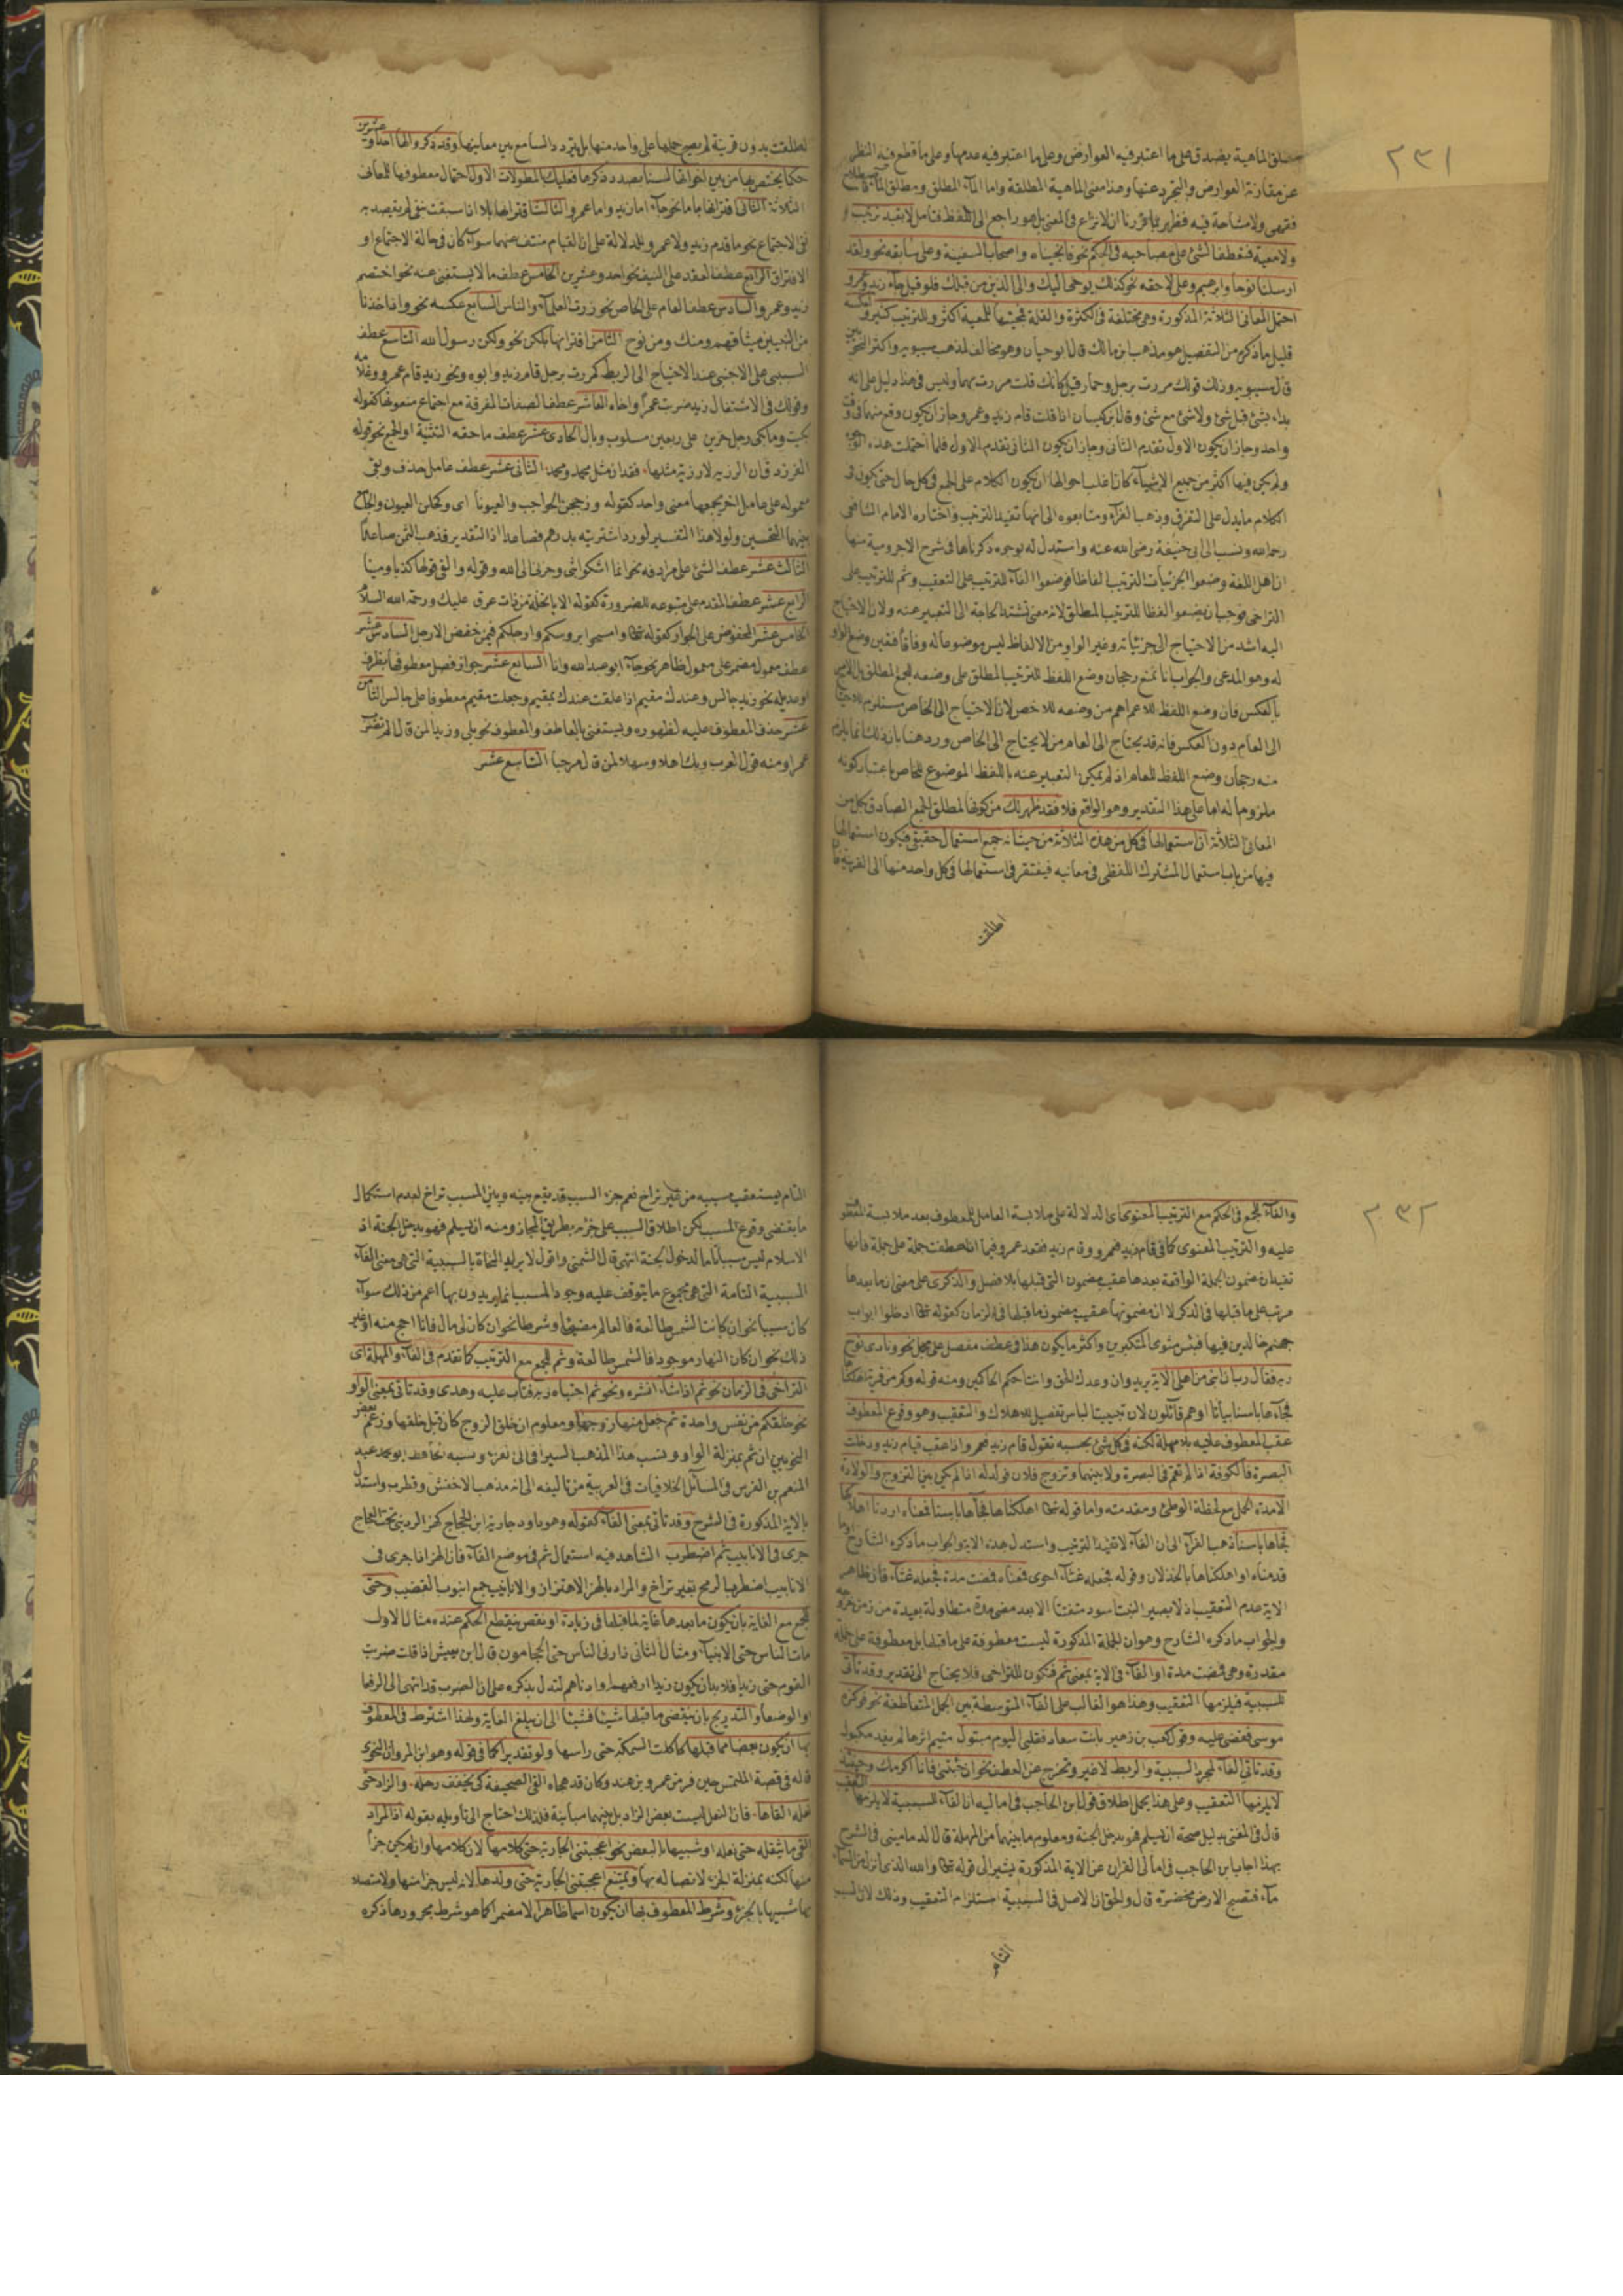 ٢٣١
مطلق الماهية يصدق على ما اعتبر فيه العوارض وعلى ما اعتبر فيه عدمها وعلى ما قطع فيه النظر
عن مقارنة العوارض والتجرد عنها وهذا معنى الماهية المطلقة واما الماء المطلق ومطلق الماء فاصطلاح
فقهي ولا مشاحة فيه فظهر بما قررنا ان لا نزاع في المعنى بل هو راجع الى اللفظ فتامل لا بقيد ترتيب و
ولا معية فتعطف الشئ على مصاحبه في الحكم نحو فانجيناه واصحاب السفينة وعلى سابقه نحو ولقد
ارسلنا نوحا وابرهيم وعلى لاحقه نحو كذلك يوحى اليك والى الذين من قبلك فلو قيل جاء زيد وعمرو
احتمل المعاني الثلاثة المذكورة وهي مختلفة في الكثرة والقلة فمجيئها للمعية اكثر وللترتيب كثير ولعكسه
قليل ما ذكره من التفصيل هو مذهب ابن مالك قال ابو حيان وهو مخالف لمذهب سيبويه واكثر النحويين
قال سيبويه وذلك قولك مررت برجل وحمار قبل كانك قلت مررت بهما وليس في هذا دليل على انه
بداء بشئ قبل شئ ولا شئ مع شئ وقال ابن كيسان اذا قلت قام زيد وعمرو جاز ان يكون وقع منهما في وقت
واحد وجاز ان يكون الاول تقدم الثاني وجاز ان يكون الثاني تقدم الاول فلما احتملت هذه الوجوه
ولم يكن فيها اكثر من جميع الاشياء كان اغلب احوالها ان يكون الكلام على الجمع في كل حال حتى يكون في
الكلام ما يدل على التفرق وذهب الفراء ومتابعوه الى انها تفيد الترتيب واختاره الامام الشافعي
رحمه الله ونسب الى ابي حنيفة رضى الله عنه واستدل له بوجوه ذكرناها في شرح الاجرومية منها
ان اهل اللغة وضعوا الجزئيات الترتيب الفاظا فوضعوا الفاء للترتيب على التعقيب وثم للترتيب على
التراخي فوجب ان يضعوا لفظا للترتيب المطلق لانه معنى تشتد الحاجة الى التعبير عنه ولان الاحتياج
اليه اشد من الاحتياج الى جزئياته وغير الواو من الالفاظ ليس موضوعا له وفاقا فتعين وضع الواو
له وهو المدعى والجواب انا نمنع رجحان وضع اللفظ للترتيب المطلق على وضعه للجمع المطلق بل الامر
بالعكس فان وضع اللفظ للاعم اهم من وضعه للاخص لان الاحتياج الى الخاص مستلزم للاحتياج
الى العام دون العكس فانه قد يحتاج الى العام من لا يحتاج الى الخاص ورد هذا بان ذلك انما يلزم
منه رجحان وضع اللفظ للعام اذ لم يمكن التعبير عنه باللفظ الموضوع للخاص باعتبار كونه
ملزوما له اما على هذا التقدير وهو الواقع فلا فقد ظهر لك من كونها لمطلق الجمع الصادق بكل من
المعاني الثلاثة ان استعمالها في كل من هذه الثلاثة من حيث انه جمع استعمال حقيقي فيكون استعمالها
فيها من باب استعمال المشترك اللفظي في معانيه فيفتقر في استعمالها في كل واحد منها الى القرينة فان
اطلقت
اطلقت بدون قرينة لم يصح حملها على واحد منها بل يتردد السامع بين معانيها وقد ذكروا لها احدا وعشرين
حكما يختص بها من بين اخواتها لسنا بصدد ذكرها فعليك بالمطولات الاول احتمال معطوفها للمعاني
الثلاثة الثاني اقترانها باما نحو جاء اما زيد واما عمرو الثالث اقترانها بلا اذا سبقت بنفي لم يقصد به
نفي الاجتماع نحو ما قدم زيد ولا عمرو لتدل دلالة على ان القيام منتف عنهما سواء كان في حالة الاجتماع او
الافتراق الرابع عطف العقد على النيف نحو احد وعشرين الخامس عطف ما لا يستغنى عنه نحو اختصم
زيد وعمرو والسادس عطف العام على الخاص نحو زرت العلماء والناس السابع عكسه نحو واذ اخذنا
من النبيين ميثاقهم ومنك ومن نوح الثامن اقترانها بلكن نحو ولكن رسول الله التاسع عطف
السببي على الاجنبي عند الاحتياج الى الربط كمررت برجل قام زيد وابوه ونحو زيد قام عمرو وغلامه
وقولك في الاشتغال زيد ضربت عمرا واخاه العاشر عطف الصفات المفرقة مع اجتماع منعوتها كقوله
بكيت وما بكى رجل حزين على ربعين مسلوب وبال الحادي عشر عطف ما حقه التثنية او الجمع نحو قوله
الفرزدق ان الرزية لا رزية مثلها فقدان مثل محمد ومحمد الثاني عشر عطف عامل حذف وبقى
معموله على عامل اخر يجمعهما معنى واحد كقوله وزججن الحواجب والعيونا اي وكحلن العيون والجامع
بينهما التحسين ولولا هذا التفسير لورد اشتريته بدرهم فصاعدا اذ التقدير فذهب الثمن صاعدا
الثالث عشر عطف الشئ على مرادفه نحو انما اشكو بثي وحزني الى الله وقوله والفى قولها كذبا ومينا
الرابع عشر عطف المقدم على متبوعه للضرورة كقوله الا يا نخلة من ذات عرق عليك ورحمة الله السلام
الخامس عشر عطف المخفوض على الجوار كقوله تعالى وامسحوا بروسكم وارجلكم فيمن خفض الارجل السادس عشر
عطف معمول مضمر على معمول ظاهر نحو جاء ابو عبد الله وانا السابع عشر جواز فصل معطوفها بظرف
او عديله نحو زيد جالس وعندك مقيم اذا علقت عندك بمقيم وجعلت مقيم معطوفا على جالس الثامن
عشر حذف المعطوف عليه لظهوره ويستغنى بالعاطف والمعطوف نحو بلى وزيدا لمن قال الم تضرب
عمرا ومنه قول العرب وبك اهلا وسهلا لمن قال مرحبا التاسع عشر
٢٣٢
والفاء للجمع في الحكم مع الترتيب المعنوي اي الدلالة على ملابسة العامل للمعطوف بعد ملابسة المعطوف
عليه والترتيب المعنوي كما في قام زيد فعمرو وقام زيد فقعد عمرو فيما اذا عطفت جملة على جملة فانها
تفيد ان مضمون الجملة الواقعة بعدها عقيب مضمون التي قبلها بلا فصل والذكري على معنى ان ما بعدها
مرتب على ما قبلها في الذكر لا ان مضمونها عقيب مضمون ما قبلها في الزمان كقوله تعالى ادخلوا ابواب
جهنم خالدين فيها فبئس مثوى المتكبرين واكثر ما يكون هذا في عطف مفصل على مجمل نحو ونادى نوح
ربه فقال رب ان ابني من اهلي الاية يريد وان وعدك الحق وانت احكم الحاكمين ومنه قوله وكم من قرية اهلكناها
فجاءها باسنا بياتا او هم قائلون لان تبييت الباس تفصيل للاهلاك والتعقيب وهو وقوع المعطوف
عقب المعطوف عليه بلا مهلة لكنه في كل شئ بحسبه تقول قام زيد فعمرو اذا عقب قيام زيد ودخلت
البصرة فالكوفة اذا لم تقم في البصرة ولا بينهما وتزوج فلان فولد له اذا لم يكن بين التزوج والولادة
الا مدة الحمل مع لحظة الوطئ ومقدمته واما قوله تعالى اهلكناها فجاءها باسنا فمعناه اردنا اهلاكها
فجاءها باسنا ذهب الفراء الى ان الفاء لا تفيد الترتيب واستدل بهذه الاية والجواب ما ذكره الشارح
قدمناه او اهلكناها بالخذلان وقوله فجعله غثاء احوى فمعناه فمضت مدة فجعله غثاء فان ظاهر
الاية عدم التعقيب اذ لا يصير النبت اسود متفتتا الا بعد مضي مدة متطاولة بعيدة من زمن خروجه
والجواب ما ذكره الشارح وهو ان الجملة المذكورة ليست معطوفة على ما قبلها بل معطوفة على جملة
مقدرة وهي فمضت مدة او الفاء في الاية بمعنى ثم فتكون للتراخي فلا يحتاج الى تقدير وقد تاتي
للسببية فيلزمها التعقيب وهذا هو الغالب على الفاء المتوسطة بين الجمل المتعاطفة نحو فوكزه
موسى فقضى عليه وقول كعب بن زهير بانت سعاد فقلبي اليوم متبول متيم اثرها لم يفد مكبول
وقد تاتي الفاء لمجرد السببية والربط لا غير وتخرج عن العطف نحو ان جئتني فانا اكرمك وحينئذ
لا يلزمها التعقيب وعلى هذا يحمل اطلاق قول ابن الحاجب في اماليه ان الفاء السببية لا يلزمها التعقيب
قال في المغني بدليل صحة ان يسلم فهو يدخل الجنة ومعلوم ما بينهما من المهلة قال الدماميني في الشرح
بهذا اجاب ابن الحاجب في امالي القران عن الاية المذكورة يشير الى قوله تعالى والله الذي انزل من السماء
ماء فتصبح الارض مخضرة قال والحق ان الاصل في السببية استلزام التعقيب وذلك لان السبب
التام
التام يستعقب مسببه من غير تراخ نعم جزء السبب قد يقع بينه وبين المسبب تراخ لعدم استكمال
ما يقتضى وقوع المسبب لكن اطلاق السبب على جزئه بطريق المجاز ومنه ان يسلم فهو يدخل الجنة اذ
الاسلام ليس سببا تاما لدخول الجنة انتهى قال الشمني واقول لا يريد النحاة بالسببية التي هي معنى الفاء
السببية التامة التي هي مجموع ما يتوقف عليه وجود المسبب انما يريدون بها اعم من ذلك سواء
كان سببا نحو ان كانت الشمس طالعة فالعالم مضيئ او شرطا نحو ان كان لي مال فانا احج منه او غير
ذلك نحو ان كان النهار موجودا فالشمس طالعة وثم للجمع مع الترتيب كما تقدم في الفاء والمهلة اي
التراخي في الزمان نحو ثم اذا شاء انشره ونحو ثم اجتباه ربه فتاب عليه وهدى وقد تاتي بمعنى الواو
نحو خلقكم من نفس واحدة ثم جعل منها زوجها ومعلوم ان خلق الزوج كان قبل خلقها وزعم بعض
النحويين ان ثم بمنزلة الواو ونسب هذا المذهب السيرافي الى نفره ونسبه الحافظ ابو محمد عبد
المنعم بن الفرس في المسائل الخلافيات في العربية من تاليفه الى انه مذهب الاخفش وقطرب واستدل
بالاية المذكورة في الشرح وقد تاتي بمعنى الفاء كقوله وهو ابو دواد جارية ابن الحجاج كهز الرديني تحت العجاج
جرى في الانابيب ثم اضطرب الشاهد فيه استعمال ثم في موضع الفاء فان الهز اذا جرى في
الانابيب اضطرب الرمح بغير تراخ والمراد بالهز الاهتزاز والانابيب جمع انبوب القضيب وحتى
للجمع مع الغاية بان يكون ما بعدها غاية لما قبلها في زيادة او نقص ينقطع الحكم عنده مثال الاول
مات الناس حتى الانبياء ومثال الثاني زارني الناس حتى الحجامون قال ابن يعيش اذا قلت ضربت
القوم حتى زيدا فلا بد ان يكون زيدا ارفعهم او ادناهم لتدل بذكره على ان الضرب قد انتهى الى الرفعا
او الوضعا والتدريج بان ينقضى ما قبلها شيئا فشيئا الى ان يبلغ الغاية ولهذا اشترط في المعطوف
بها ان يكون بعضا مما قبلها كاكلت السمكة حتى راسها ولو تقديرا كما في قوله وهو ابو المروان النحوي
قاله في قصة المتلمس حين فر من عمرو بن هند وكان قد هجاه القى الصحيفة كي يخفف رحله والزاد حتى
نعله القاها فان النعل ليست بعض الزاد بل بينهما مباينة فلذلك احتاج الى تاويله بقوله اذ المراد
القى ما يثقله حتى نعله او شبيها بالبعض نحو اعجبتني الجارية حتى كلامها لان كلامها وان لم يكن جزأ
منها لكنه بمنزلة الجزء لاتصاله بها ويمتنع اعجبتني الجارية حتى ولدها لانه ليس جزأ منها ولا متصلا
بها شبيها بالجزء وشرط المعطوف بها ان يكون اسما ظاهرا لا مضمرا كما هو شرط مجرورها ذكره